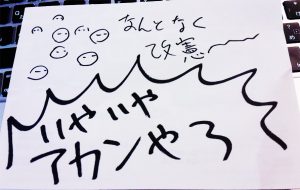 なんとなく
改憲〜
いやいや
アカンやろ